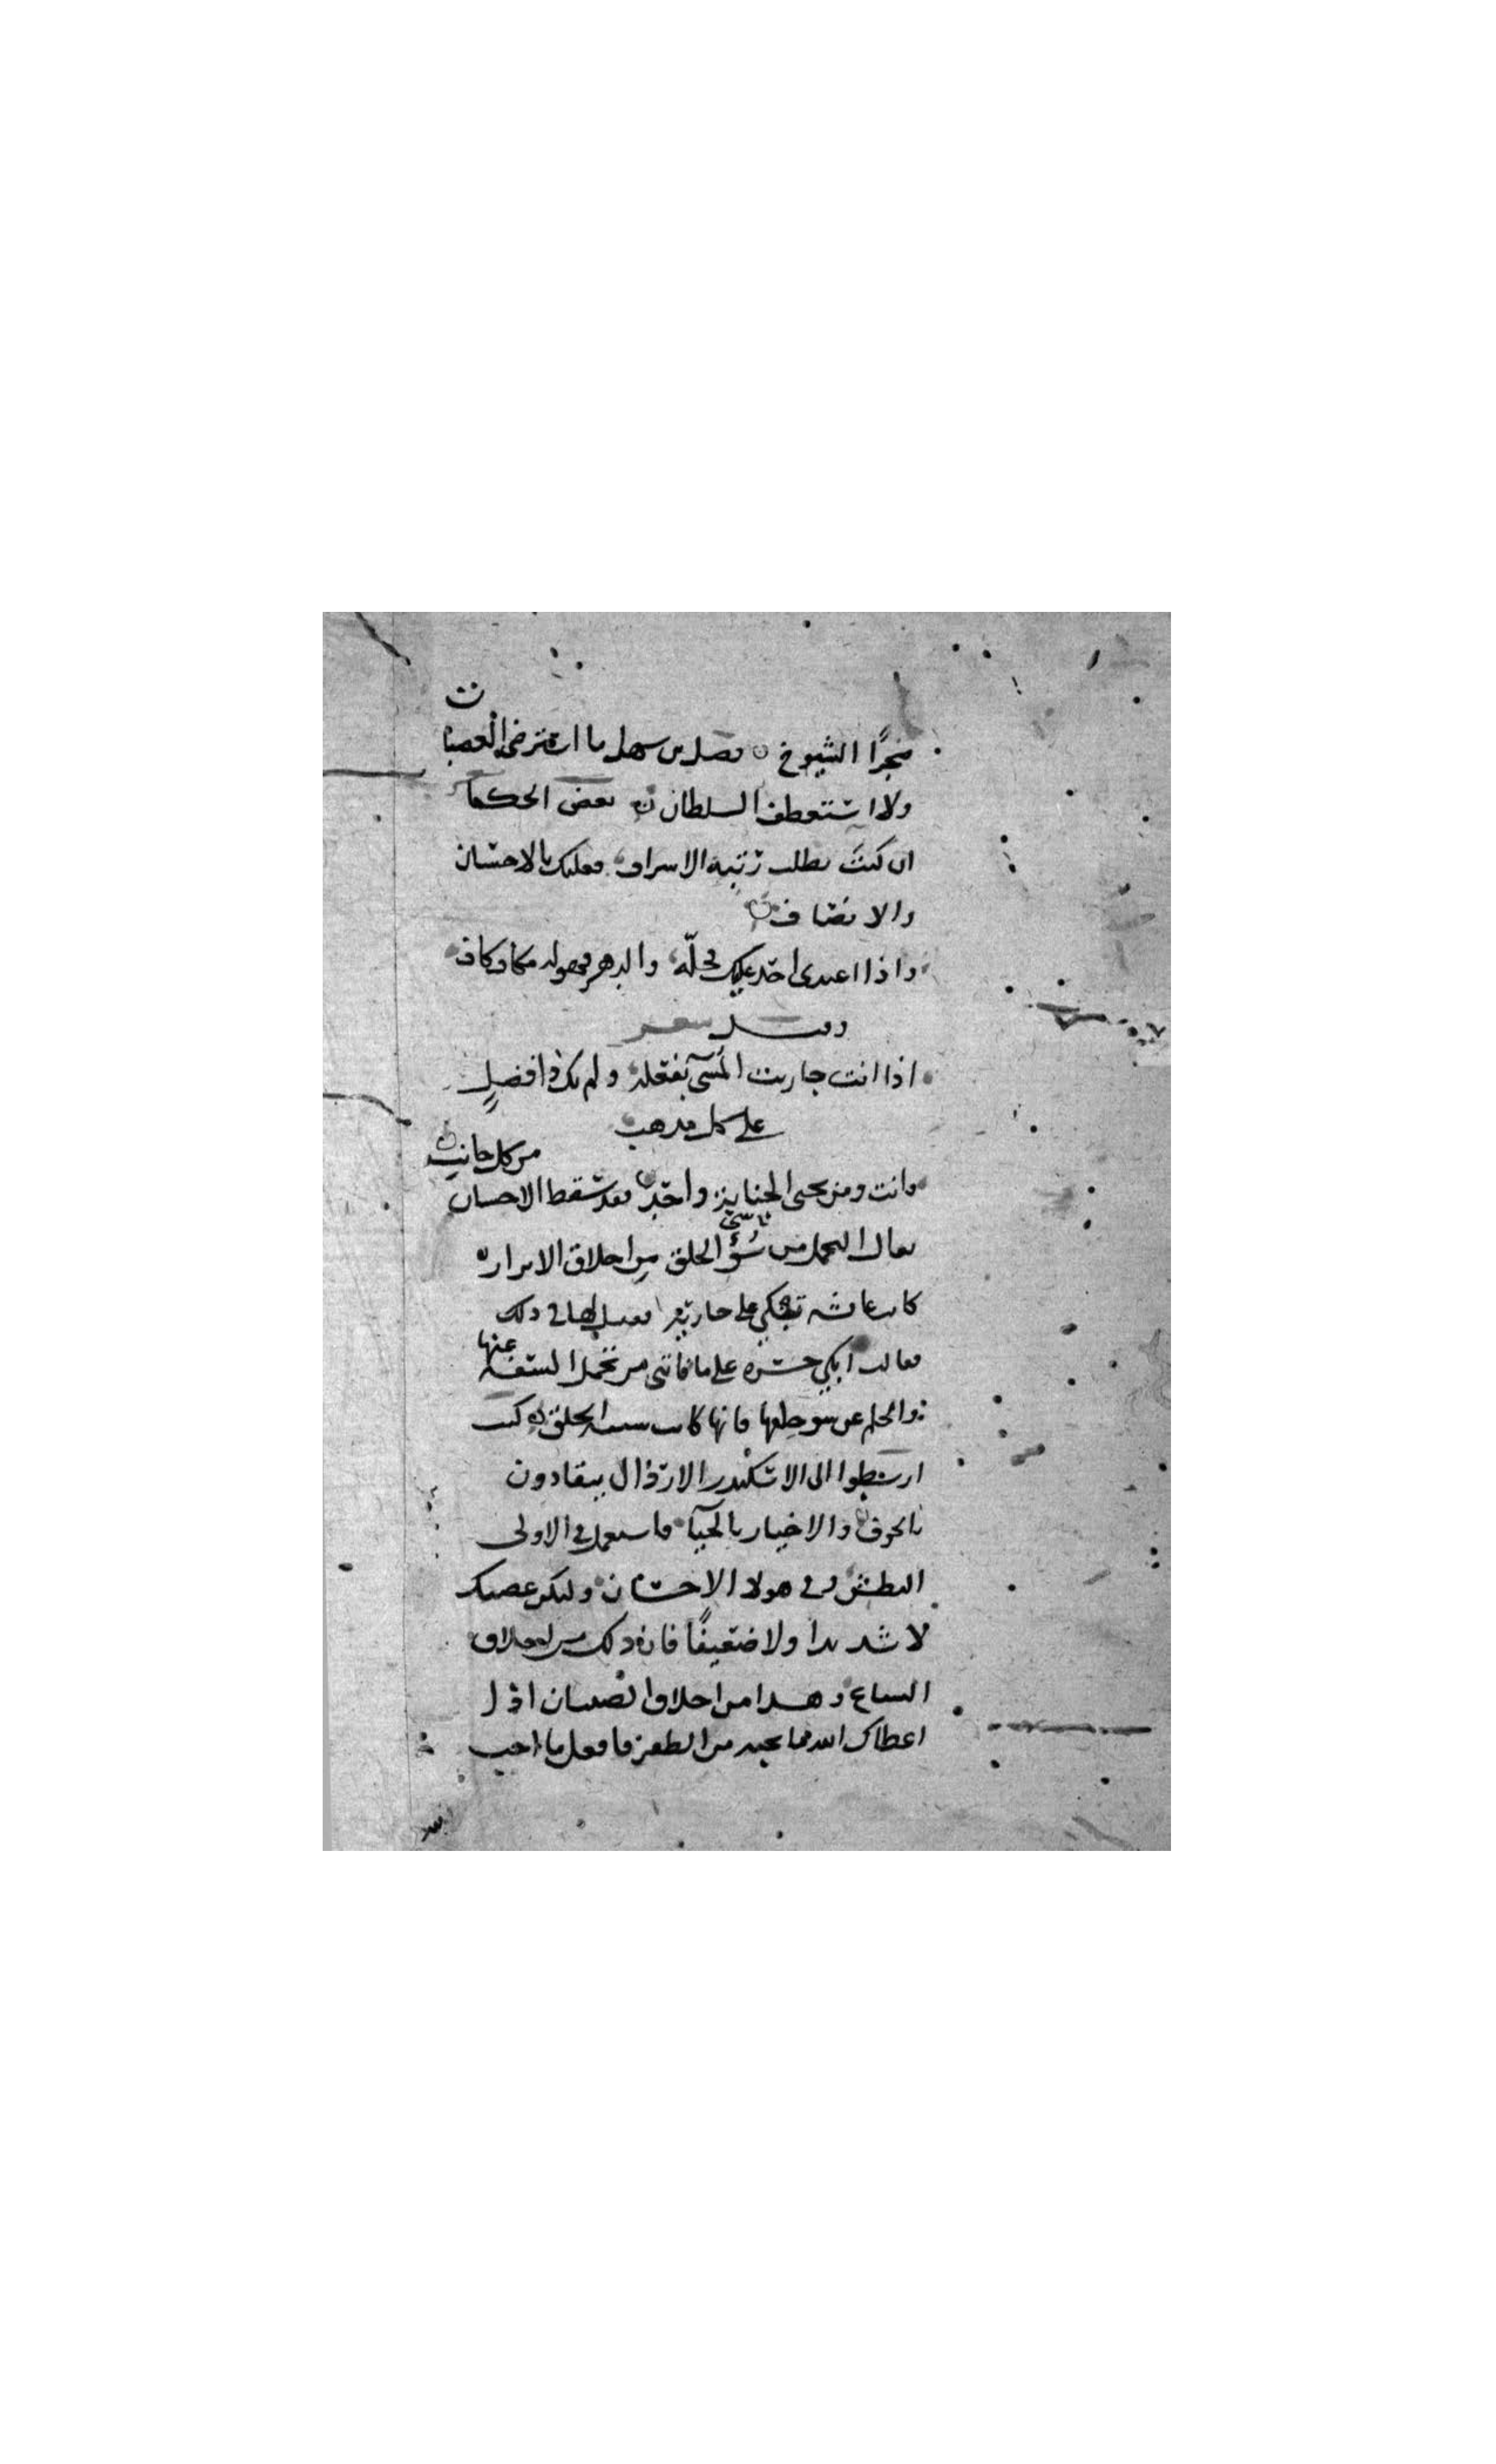 ضجرًا الشيوخ فضل بن سهل ما استرضي الغضبان
ولا استعطف السلطان بعض الحكما
ان كنت تطلب رتبة الاشراف فعليك بالاحسان
والانصاف
واذا اعتدى احد عليك فخله والدهر فهو له مكاف كاف
وقيل شعر
اذا انت جازيت المسيء بفعله ولم تك ذا فضل
على كل مذهب
فانت ومن يجني الجناية واحد فقد سقط الاحسان
من كل جانب
يقال التحمل من سوء الخلق من اخلاق الابرار
كانت تبكي على جارية فقيل لها في ذلك
فقالت ابكي حسرة على ما فاتني من تحمل السفه عنها
والحلم عن سو خلقها فانها كانت سيئة الخلق كتب
ارسطوا الى الاسكندر الارذال ينقادون
بالخوف والاخيار بالحيآ فاستعمل في الاولى
البطش وفي هولا الاحسان وليكن غضبك
لا شديدا ولا ضعيفًا فان ذلك من اخلاق
السباع وهذا من اخلاق الصبيان اذا
اعطاك الله مما تحبه من الظفر فافعل ما احب